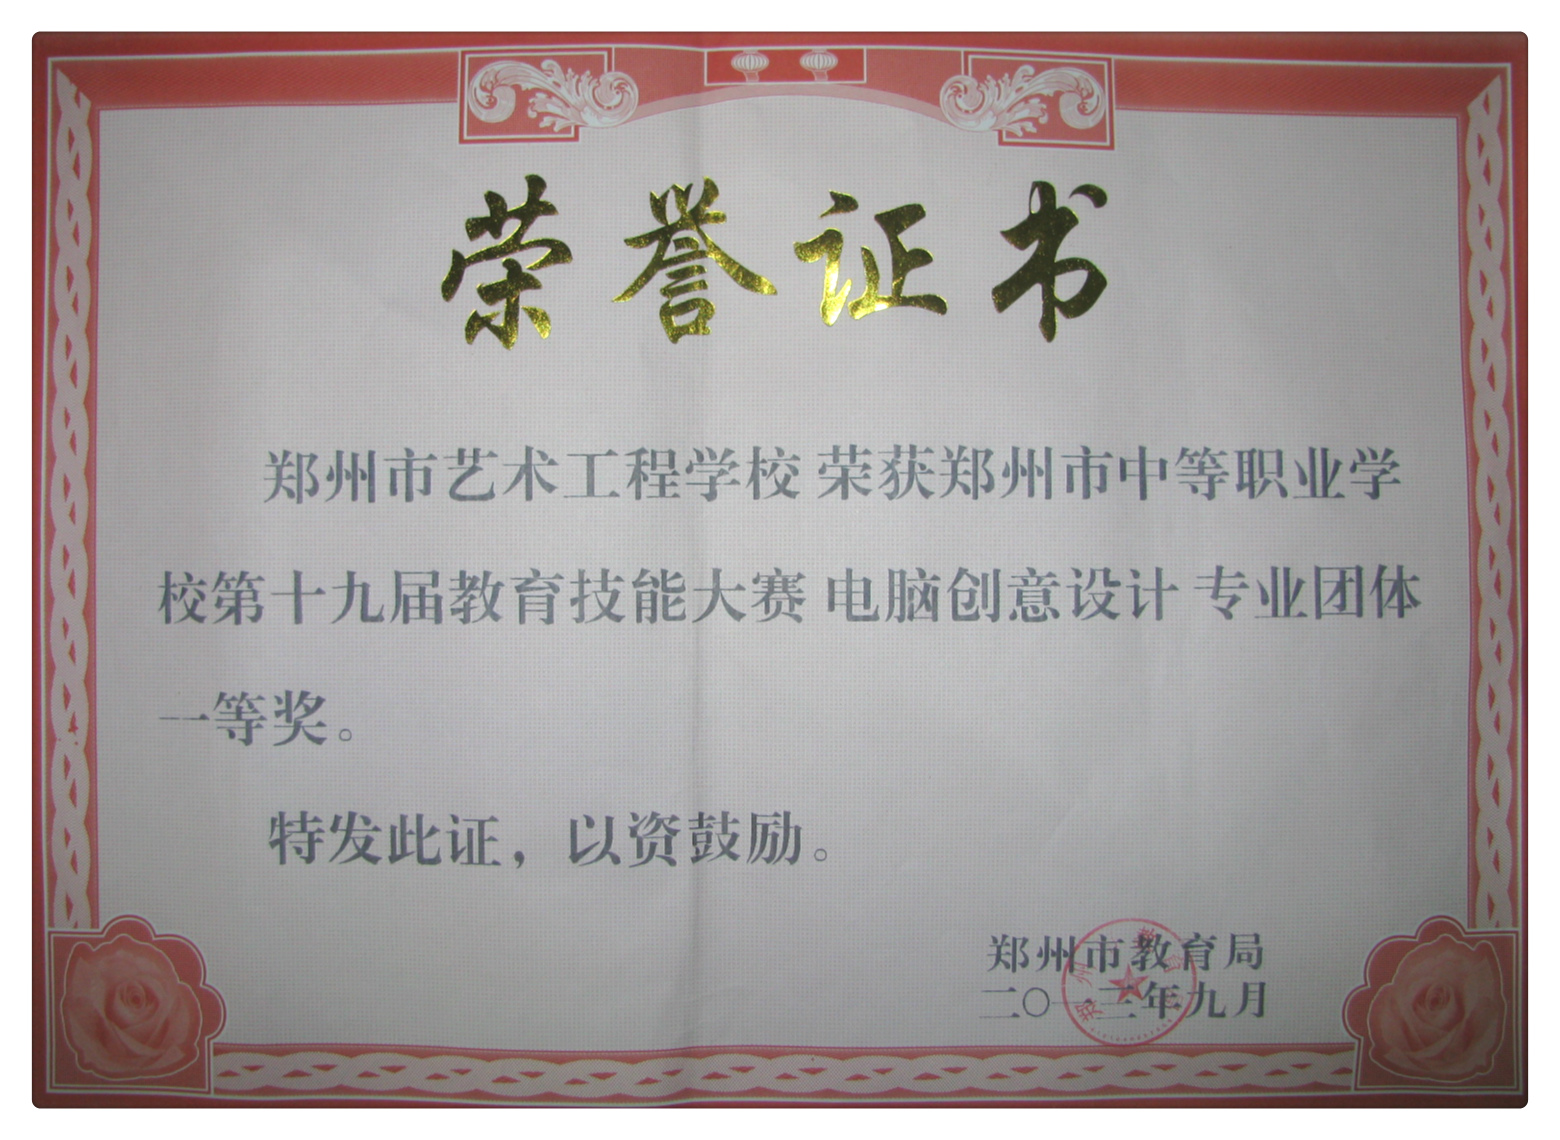 荣誉证书
郑州市艺术工程学校 荣获郑州市中等职业学
校第十九届教育技能大赛 电脑创意设计 专业团体
一等奖。
特发此证，以资鼓励。
郑州市教育局
二〇一三年九月